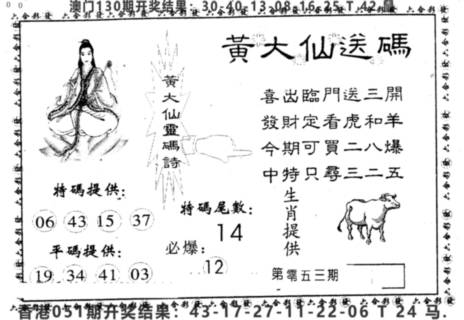 澳门130期开奖结果：30-40-13-08-16-25 T 42
黃大仙送碼
黃大仙靈碼詩
喜出臨門送三開
發財定看虎和羊
今期可買二八爆
中特只尋三二五
特碼提供：
06 43 15 37
平碼提供：
19 34 41 03
特碼尾數：
14
必爆：
12
生肖提供
第零五三期
香港051期开奖结果：43-17-27-11-22-06 T 24 马.